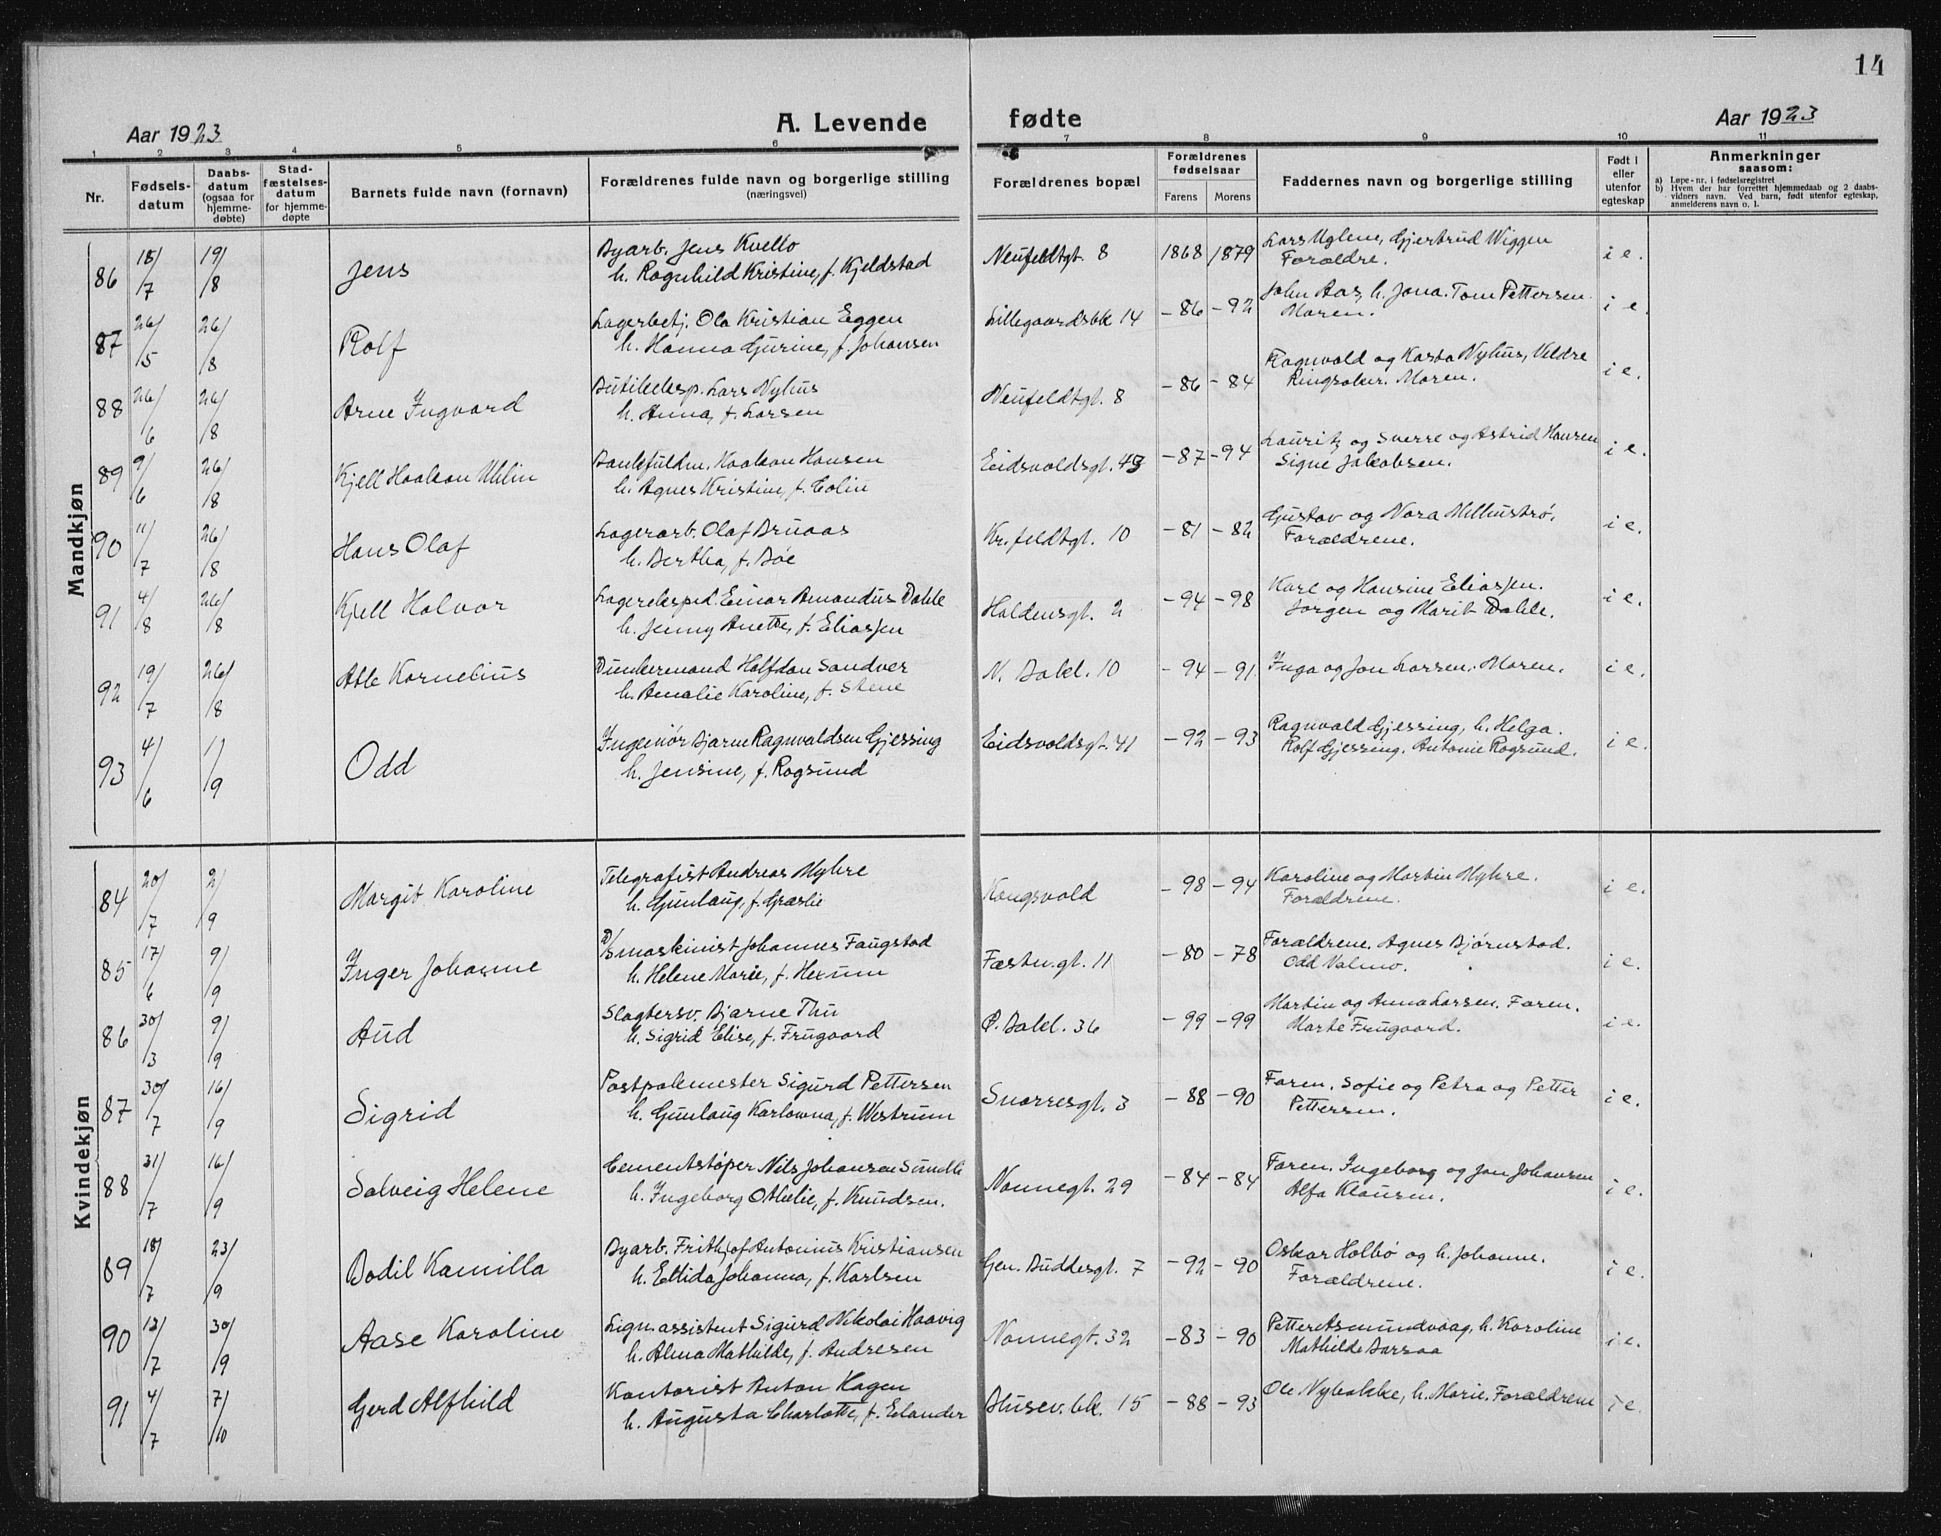 14
Aar 1923 A. Levende fødte Aar 1923
1 2 3 4 5 6 7 8 9 10 11
Nr. Fødselsdatum Daabsdatum (ogsaa for hjemmedøbte) Stadfæstelsesdatum for hjemmedøpte Barnets fulde navn (fornavn) Forældrenes fulde navn og borgerlige stilling (næringsvei) Forældrenes bopæl Forældrenes fødselsaar Farens Morens Faddernes navn og borgerlige stilling Født i eller utenfor egteskap Anmerkninger saasom:
a) Løpe-nr. i fødselsregistret
b) Hvem der har forrettet hjemmedaab og 2 daabsvidners navn. Ved barn, født utenfor egteskap, anmelderens navn o. l.
Mandkjøn
86 18/7 19/8 Jens Byarb. Jens Kvello Neufeldtgt. 8 1868 1879 Lars Uglene, Gjertrud Wiggen i e.
h. Ragnhild Kristine, f. Kjeldstad Forældre.
87 26/5 26/8 Rolf Lagerbetj. Ola Kristian Eggen Lillegaardsbk 14 -86 -92 John Aas, h. Jona. Tom Pettersen. i e.
h. Hanna Gurine, f. Johansen Moren.
88 26/6 26/8 Arne Ingvard Butikeksp. Lars Nyhus Neufeldtgt. 8 -86 -84 Ragnvald og Kasta Nyhus, Veldre i e.
h. Anna, f. Larsen Ringsaker. Moren.
89 9/6 26/8 Kjell Haakon Uhlin Bankfuldm. Haakon Hansen Eidsvoldsgt. 43 -87 -94 Lauritz og Sverre og Astrid Hansen i e.
h. Agnes Kristine, f. Colin Signe Jakobsen.
90 11/7 26/8 Hans Olaf Lagerarb. Olaf Bruaas Kr. feldtgt. 10 -81 -82 Gustav og Nora Melhustrø. i e.
h. Bertha, f. Bøe Forældrene.
91 4/8 26/8 Kjell Halvor Lagereksped. Einar Amandus Dahle Haldensgt. 2 -94 -98 Karl og Hansine Eliassen. i e.
h. Jenny Anette, f. Eliassen Jørgen og Marit Dahle.
92 19/7 26/8 Atle Kornelius Dunkermand Halfdan Sandver N. Bakl. 10 -94 -91 Inga og Jon Larsen. Moren. i e.
h. Amalie Karoline, f. Stene
93 4/6 1/9 Odd Ingeniør Bjarne Ragnvaldsen Gjessing Eidsvoldsgt. 41 -92 -93 Ragnvald Gjessing, h. Helga. i e.
h. Jensine, f. Rogsund Rolf Gjessing. Antonie Rogsund.
Kvindekjøn
84 20/7 2/9 Margit Karoline Telegrafist Andreas Myhre Kongsvold -98 -94 Karoline og Martin Myhre. i e.
h. Gunlaug, f. Græslie Forældrene.
85 17/6 9/9 Inger Johanne D/S maskinist Johannes Faugstad Fæstn.gt. 11 -80 -78 Forældrene. Agnes Bjørnstad. i e.
h. Helene Marie, f. Hexum Odd Valmo.
86 30/3 9/9 Aud Slagtersv. Bjarne Thu Ø. Bakl. 36 -99 -99 Martin og Anna Larsen. Faren. i e.
h. Sigrid Elise, f. Frugaard Marte Frugaard.
87 30/7 16/9 Sigrid Postpakmester Sigurd Pettersen Snorresgt. 3 -88 -90 Faren. Sofie og Petra og Petter i e.
h. Gunlaug Karlowna, f. Westrum Pettersen.
88 31/7 16/9 Solveig Helene Cementstøper Nils Johansen Sundli Nonnegt. 29 -84 -84 Faren. Ingeborg og Jon Johansen i e.
h. Ingeborg Othelie, f. Knudsen. Alfa Klausen.
89 18/7 23/9 Bodil Kamilla Byarb. Frithjof Antonius Kristiansen Gen. Buddesgt. 7 -92 -90 Oskar Holbø og h. Johanne. i e.
h. Ellida Johanna, f. Karlsen Forældrene.
90 12/7 30/9 Aase Karoline Lign. assistent Sigurd Nikolai Haavig Nonnegt. 32 -83 -90 Petter Asmundvaag, h. Karoline i e.
h. Alma Mathilde, f. Andresen Mathilde Aarsaa
91 4/7 7/10 Gerd Alfhild Kontorist Anton Hagen Bhusev. bk. 15 -88 -93 Ole Nybakke, h. Marie. Forældrene i e.
h. Augusta Charlotte, f. Eelander